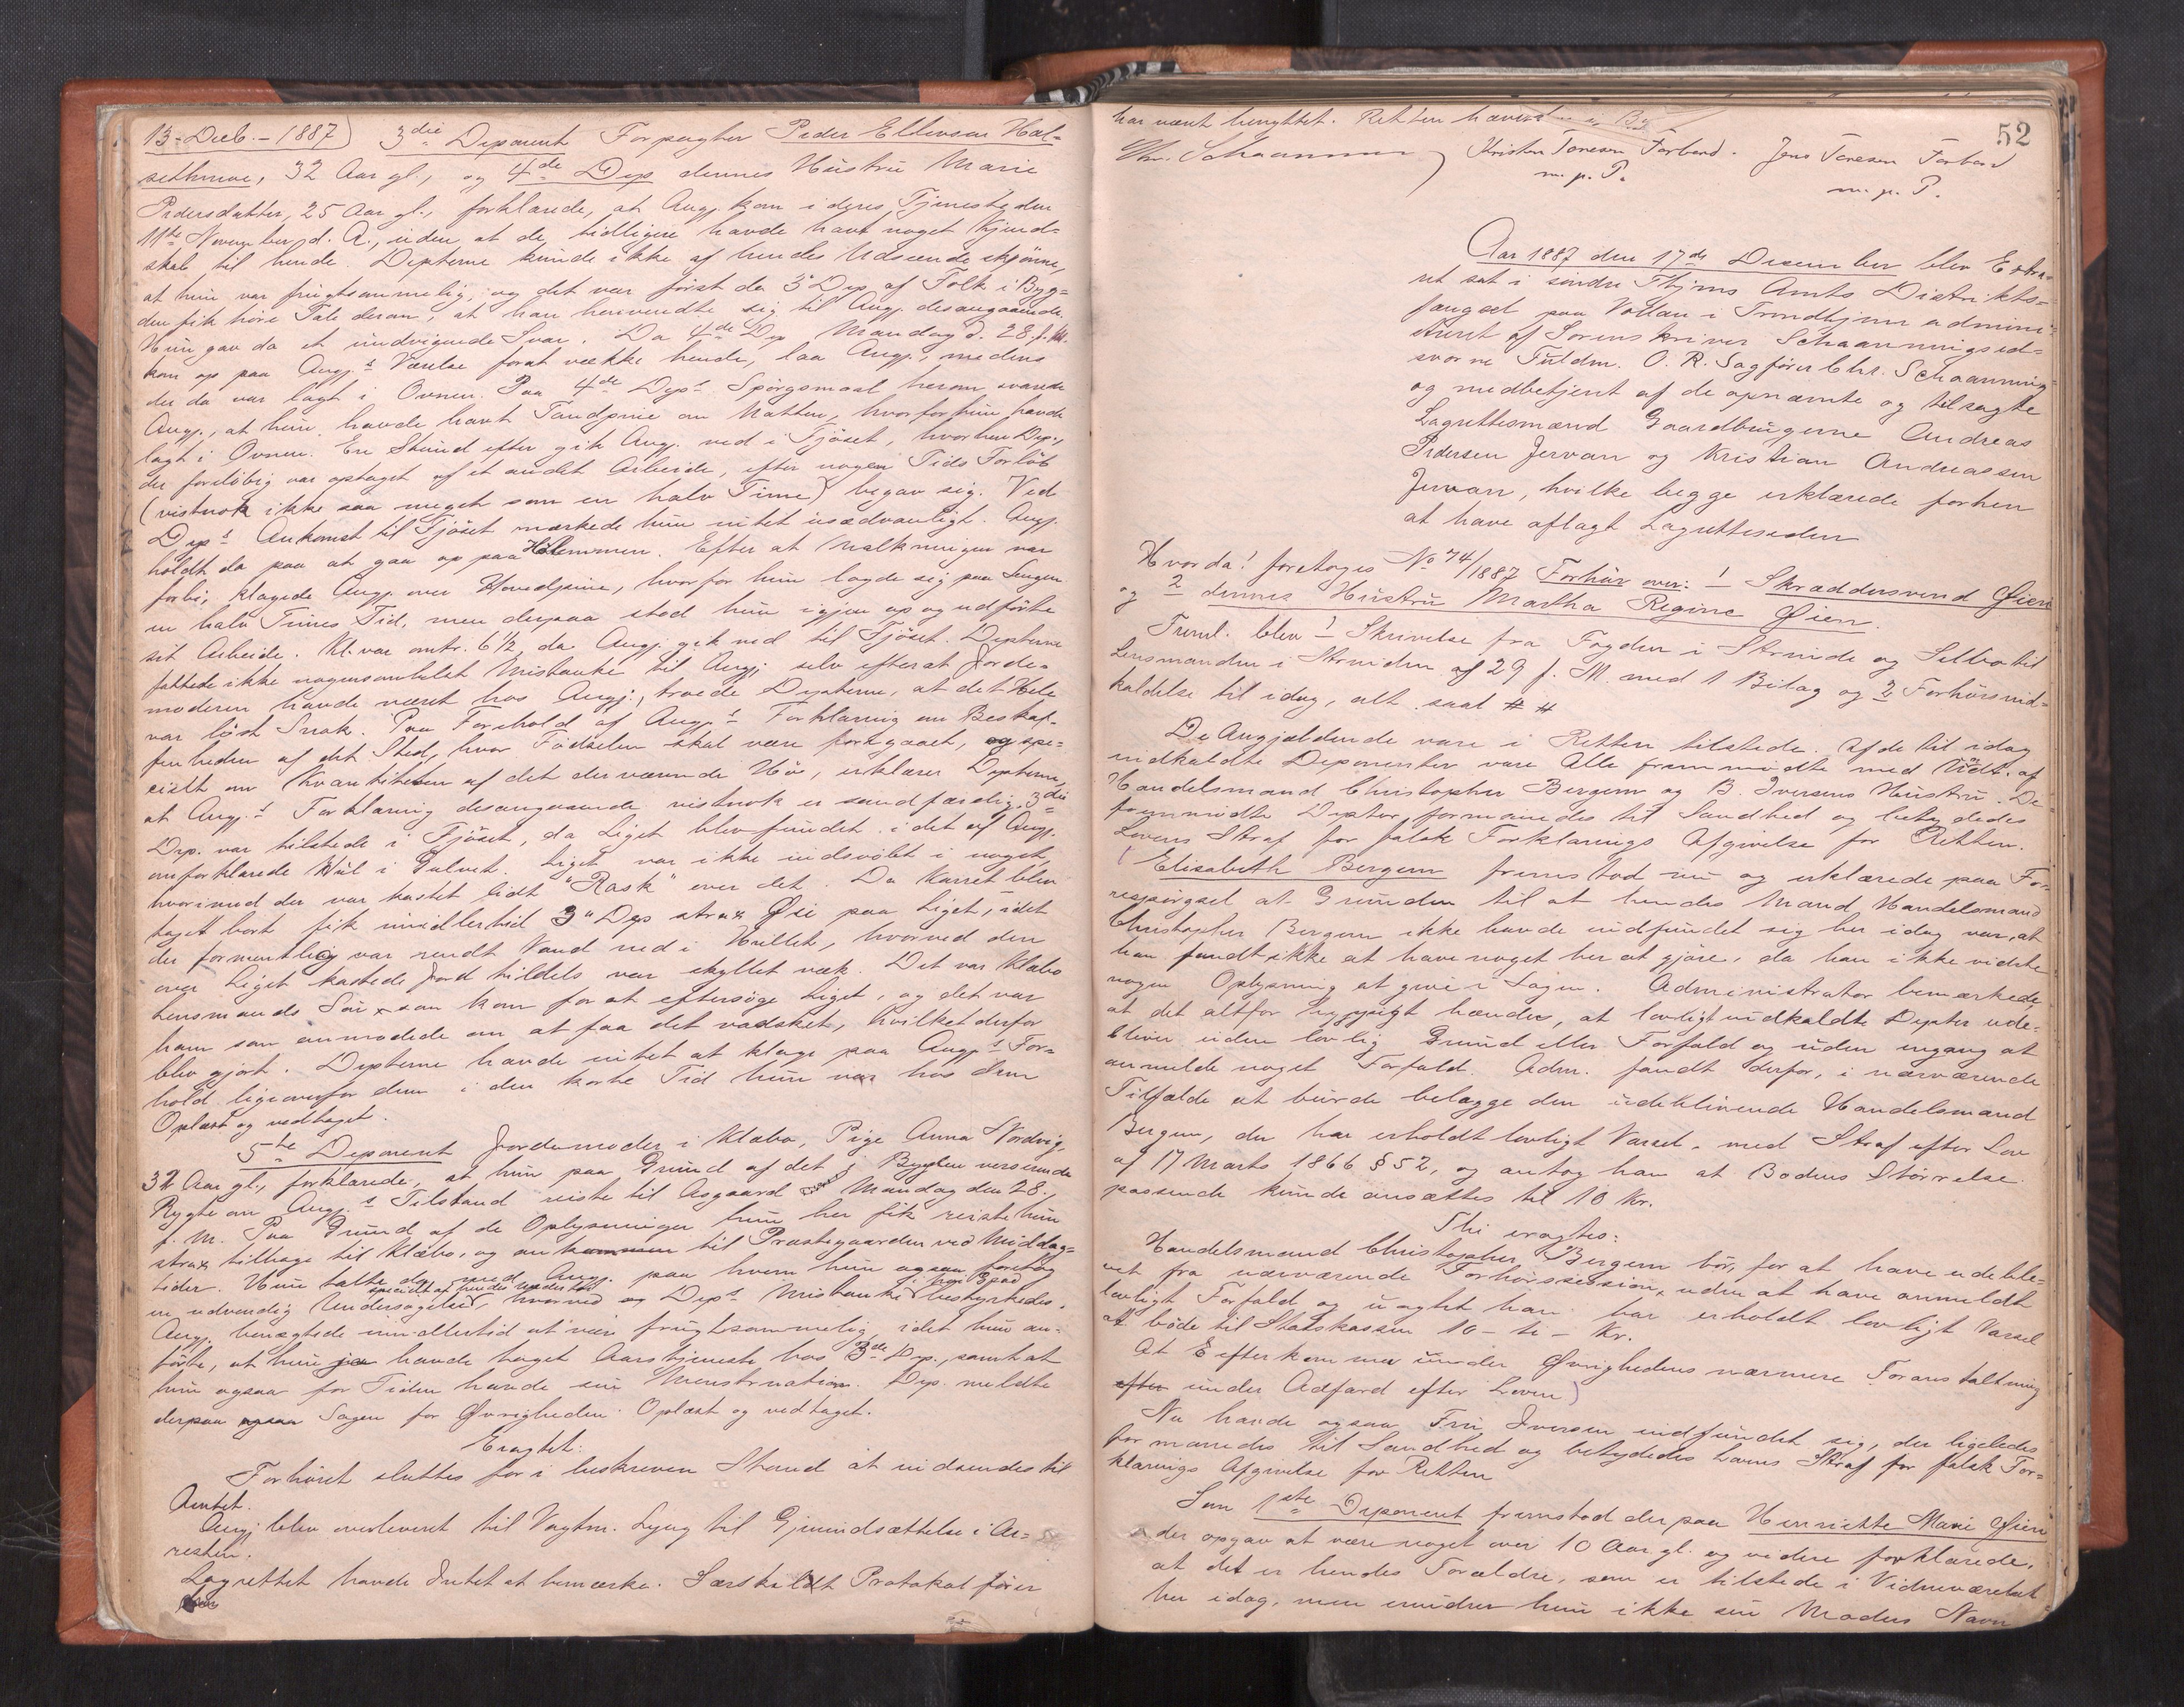 13-Decb.-1887) 3die Deponent Forpagter Peder Ellevsen Hal=
sethmoe, 32 Aar gl., og 4de Dep dennes Hustru Marie
Pedersdatter, 25 Aar gl., forklarede, at Angj. kom i deres Tjeneste den
11te November d. A., uden at de tidligere havde havt noget Kjend=
skab til hende. Depterne kunde ikke af hendes Udseende skjønne,
at hun var frugtsommelig, og det var først da 3' Dep af Folk i Byg=
den fik høre Tale derom, at han henvendte sig til Angj. desangaaende.
Hun gav da et undvigende Svar. Da 4de Dep Mandag d. 28. f. M.
kom op paa Angj.s Værelse forat vække hende, laa Angj., medens
der da var lagt i Ovnen. Paa 4de Deps Spørgsmaal herom svarede
Angj., at hun havde havt Tandpine om Natten, hvorfor hun havde
lagt i Ovnen. En Stund efter gik Angj. ned i Fjøset, hvorhen Dep.,
der foreløbig var optaget af et andet Arbeide, efter nogen Tids Forløb
(vistnok ikke saa meget som en halv Time) begav sig. Ved
Deps Ankomst til Fjøset mærkede hun intet usædvanligt. Angj.
holdt da paa at gaa op paa Hølemmen. Efter at Malkningen var
forbi, klagede Angj. over Hovedpine, hvorfor hun lagde sig paa Sengen
en halv Times Tid, men derpaa stod hun igjen op og udførte
sit Arbeide. Kl. var omtr. 6 1/2, da Angj. gik ned til Fjøset. Depterne
fattede ikke nogensomhelst Mistanke til Angj.; selv efterat Jorde=
moderen havde været hos Angj., troede Depterne, at det Hele
var løst Snak. Paa Forehold af Angj.s Forklaring om Beskaf=
fenheden af det Sted, hvor Fødselen skal være foregaaet, og spe=
cielt om Kvantiteten af det derværende Hø, erklærer Depterne,
at Angj.s Forklaring desangaaende vistnok er sandfærdig. 3die
Dep. var tilstede i Fjøset, da Liget blev fundet i det af Angj.
omforklarede Hul i Gulvet. Liget var ikke indsvøbt i noget,
hvorimod der var kastet lidt "Rask" over det. Da Karret blev
taget bort fik imidlertid 3" Dep strax Øie paa Liget, idet
der formentlig var rendt Vand ned i Hullet, hvorved den
over Liget kastede Jord tildels var skyllet væk. Det var Klæbo
Lensmands Søn, som kom for at eftersøge Liget, og det var
ham som anmodede om at faa det vadsket, hvilket derfor
blev gjort. Depterne havde intet at klage paa Angjs For=
hold ligeoverfor dem i den korte Tid hun var hos dem
Oplæst og vedtaget.
5te Deponent Jordemoder i Klæbo, Pige Anna Nordvig,
32 Aar gl., forklarede, at hun paa Grund af det i Bygden verserende
Rygte om Angj.s Tilstand reiste til Aagaard Mandag den 28.,
f. M. Paa Grund af de Oplysninger hun her fik reiste hun
strax tilbage til Klæbo, og ankommen til Præstegaarden ved Middag=
tider. Hun talte da med Angj. paa hvem hun ogsaa foretog
specielt af hendes underliv
en udvendig Undersøgelse, hvorved og Deps Mistanke bestyrkedes.
Angj. benægtede imidlertid at være frugtsommelig idet hun an=
førte, at hun jo havde taget Aarstjeneste hos 3de Dep., samt at
hun ogsaa for Tiden havde sin Menstruation. Dep. meldte
derpaa ogsaa Sagen for Øvrigheden. Oplæst og vedtaget.
Eragtet:
Forhøret sluttes for i beskreven Stand at indsendes til
Amtet.
Angj blev overleveret til Vagtm. Lyng til Gjenindsættelse i Ar=
resten.
Lagrettet havde Intet at bemærke. Særskildt Protokol for
52
har været benyttet. Retten hævet
Chr. Schaanning) Kristen Toresen Forbord. Jens Toresen Forbord
m. p. P. m. p. P.
Aar 1887 den 17de Desember blev Extra=
ret sat i søndre Thjems Amts Distrikts=
fængsel paa Vollan i Trondhjem admini=
streret af Sorenskriver Schaannings ed=
svorne Fuldm. O. R. Sagfører Chr. Schaanning
og medbetjent af de opnævnte og tilsagte
Lagrettesmænd Gaardbrugerne Andreas
Pedersen Jervan og Kristian Andreassen
Jervan, hvilke begge erklærede forhen
at have aflagt Lagretteseden
Hvorda! foretoges No 74/1887 Forhør over: 1 Skræddersvend Øien
og 2 dennes Hustru Martha Regine Øien.
Freml. blev 1 Skrivelse fra Fogden i Strinde og Selbo til
Lensmanden i Strinden af 29 f. M. med 1 Bilag og 2 Forhørsind=
kaldelse til idag, alt saal # #
De Angjældende vare i Retten tilstede. Af de til idag
indkaldte Deponenter vare Alle fremmødte med Undt. af
Handelsmand Christopher Bergem og B. Iversens Hustru. De
fremmødte Depter formanedes til Sandhed og betydedes
Lovens Straf for falsk Forklarings Afgivelse for Retten.
Elisabeth Bergem fremstod nu og erklærede paa Fo=
respørgsel at Grunden til at hendes Mand Handelsmand
Christopher Bergem ikke havde indfundet sig her idag var, at
han fandt ikke at have noget her at gjøre, da han ikke vidste
nogen Oplysning at give i Sagen. Administrator bemærkede,
at det altfor hyppigt hænder, at lovligt indkaldte Depter ude=
bliver uden lovlig Grund eller Forfald og uden engang at
anmelde noget Forfald. Adm. fandt derfor, i nærværende
Tilfælde at burde belægge den udeblivende Handelsmand
Bergem, der har erholdt lovligt Varsel, med Straf efter Lov
af 17 Marts 1866 § 52, og antog han at Bodens Størrelse
passende kunde ansættes til 10 Kr.
Thi eragtes:
Handelsmand Christopher Bergem bør, for at have udeble=
vet fra nærværende Forhørssession, uden at have anmeldt
lovligt Forfald og uagtet han har erholdt lovligt Varsel
at bøde til Statskassen 10 - ti - Kr.
At Efterkommes under Øvrighedens nærmere Foranstaltning
efter under Adfærd efter Loven)
Nu havde ogsaa Fru Iversen indfundet sig, der ligeledes
formanedes til Sandhed og betydedes Lovens Straf for falsk For=
klarings Afgivelse for Retten
Som 1ste Deponent fremstod derpaa Henriette Marie Øien
der opgav at være noget over 10 Aar gl. og videre forklarede,
at det er hendes Forældre, som er tilstede i Vidneværelset
her idag, men erindrer hun ikke sin Moders Navn